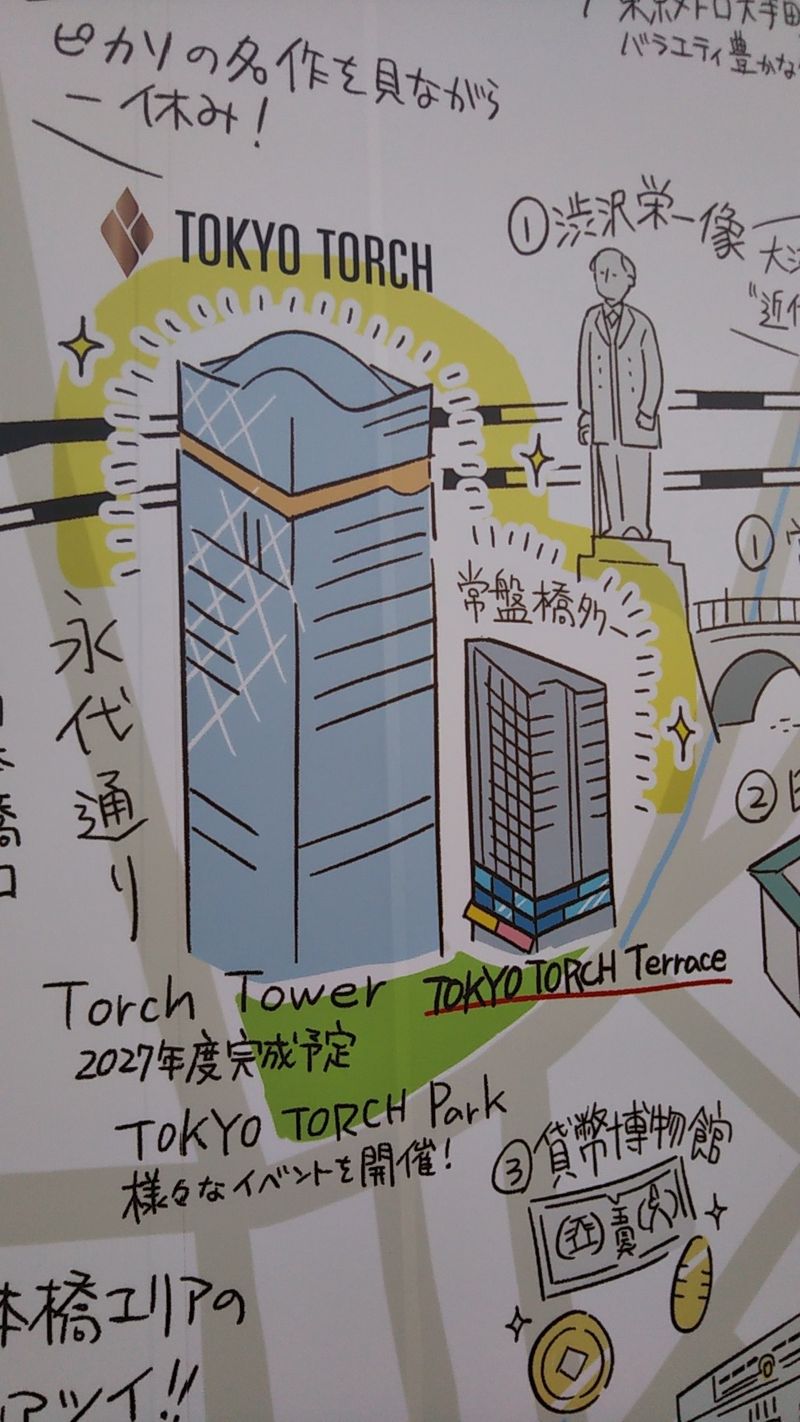 東京メトロ大手町
バラエティ豊かな
ピカソの名作を見ながら
一休み!
TOKYO TORCH
①渋沢栄一像
"近代
常盤橋タワー
①常
永代通り
②日
Torch Tower
2027年度完成予定
TOKYO TORCH Terrace
TOKYO TORCH Park
様々なイベントを開催!
③貨幣博物館
本橋エリアの
アツイ!!